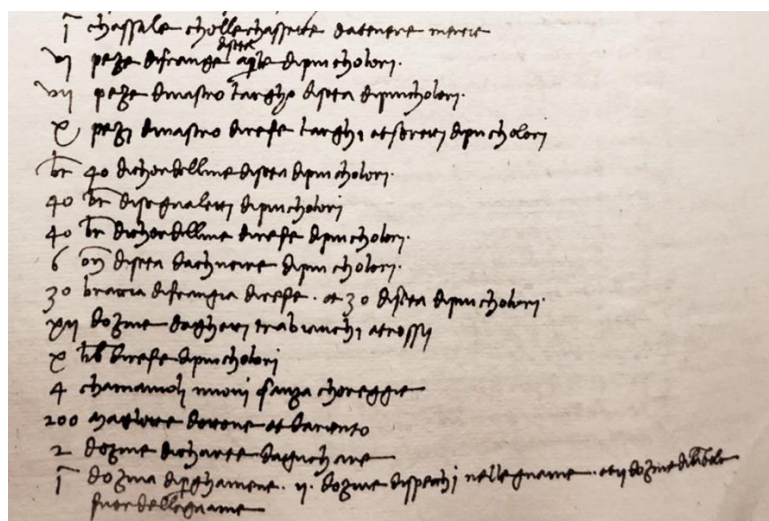 j chassale cholle chassette da tenere mercie
vj peze di frangie di seta aple di piu cholori.
vij peze di nastro largho di seta di piu cholori.
x pezi di nastro di refe larghi et stretti di piu cholori
br 40 di chordelline di seta di piu cholori.
40 br di segnaletti di piu cholori
40 br di chordelline di refe di piu cholori.
6 on di seta da chucire di piu cholori.
30 braccia di frangia di refe. et 30 di seta di piu cholori.
xij dozine daghetti tra bianchi et rossi
x lib di refe di piu cholori
4 chamaiuoli nuovi sanza choreggie
200 magliere dottone et dariento
2 dozine di charte da giuchare
j dozina di perghamene. ij. dozine di specchi nellegname. et ij dozine di
fuor dellegname